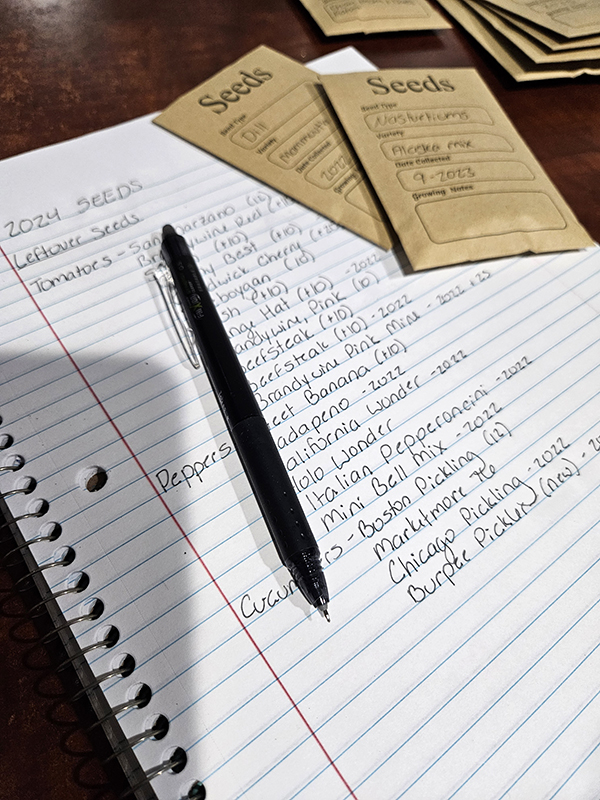 Seeds
Seed Type
Dill
Variety
Mammoth
Date Collected
2022
Growing
Seeds
Seed Type
Nasturtiums
Variety
Alaska mix
Date Collected
9-2023
Growing Notes
2024 SEEDS
Leftover Seeds
Tomatoes - San Marzano (12)
Brandywine Red (+10)
Best (+10)
Cherry (+20)
boygan (10)
(+10)
Hat (+10) - 2022
andywine, Pink (10)
eefsteak (+10)
beefsteak (+10) - 2022
Brandywine Pink Mine - 2022 +25
eet Banana (+10)
Peppers
adapeno - 2022
alifornia Wonder - 2022
lolo Wonder
Italian Pepperoncini - 2022
Mini Bell mix - 2022
Cucum rs - Boston Pickling (12)
Marketmore 76
Chicago Pickling - 2022
Burpee Picklin (new)